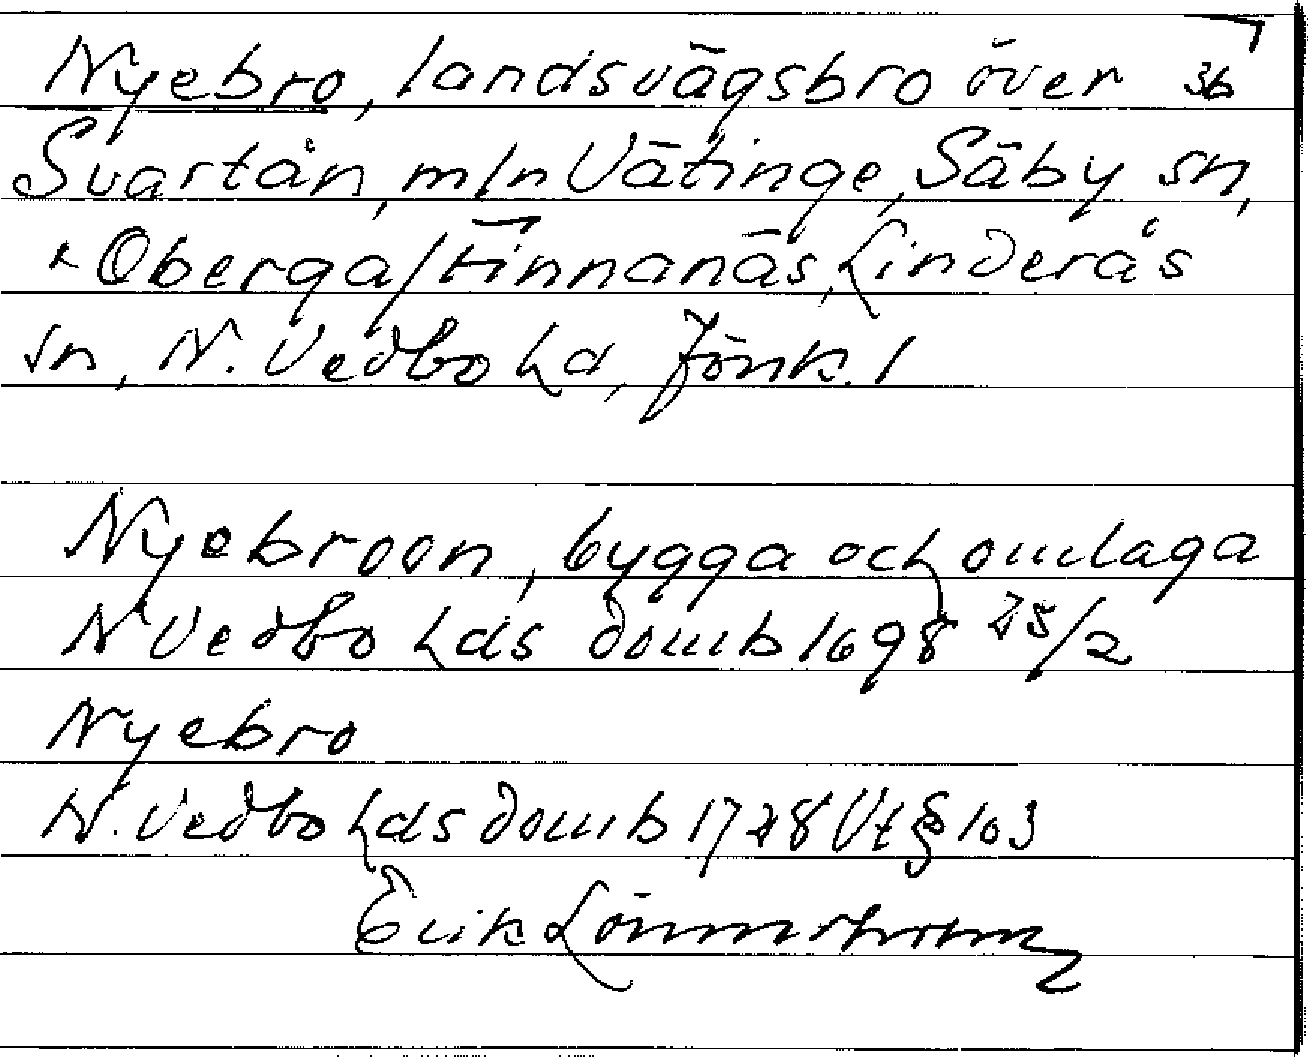 Nyebro, landsvägsbro över 36
Svartån, mln Vätinge, Säby sn,
Oberga/Finnanäs, Linderås
sn, N. Vedbo hd, Jönk. l
Nyebroon, bygga och omlaga
N Vedbo hds domb 1698 25/2
Nyebro
N. Vedbo hds domb 1728 Vt § 103
Erik Lönnstrom